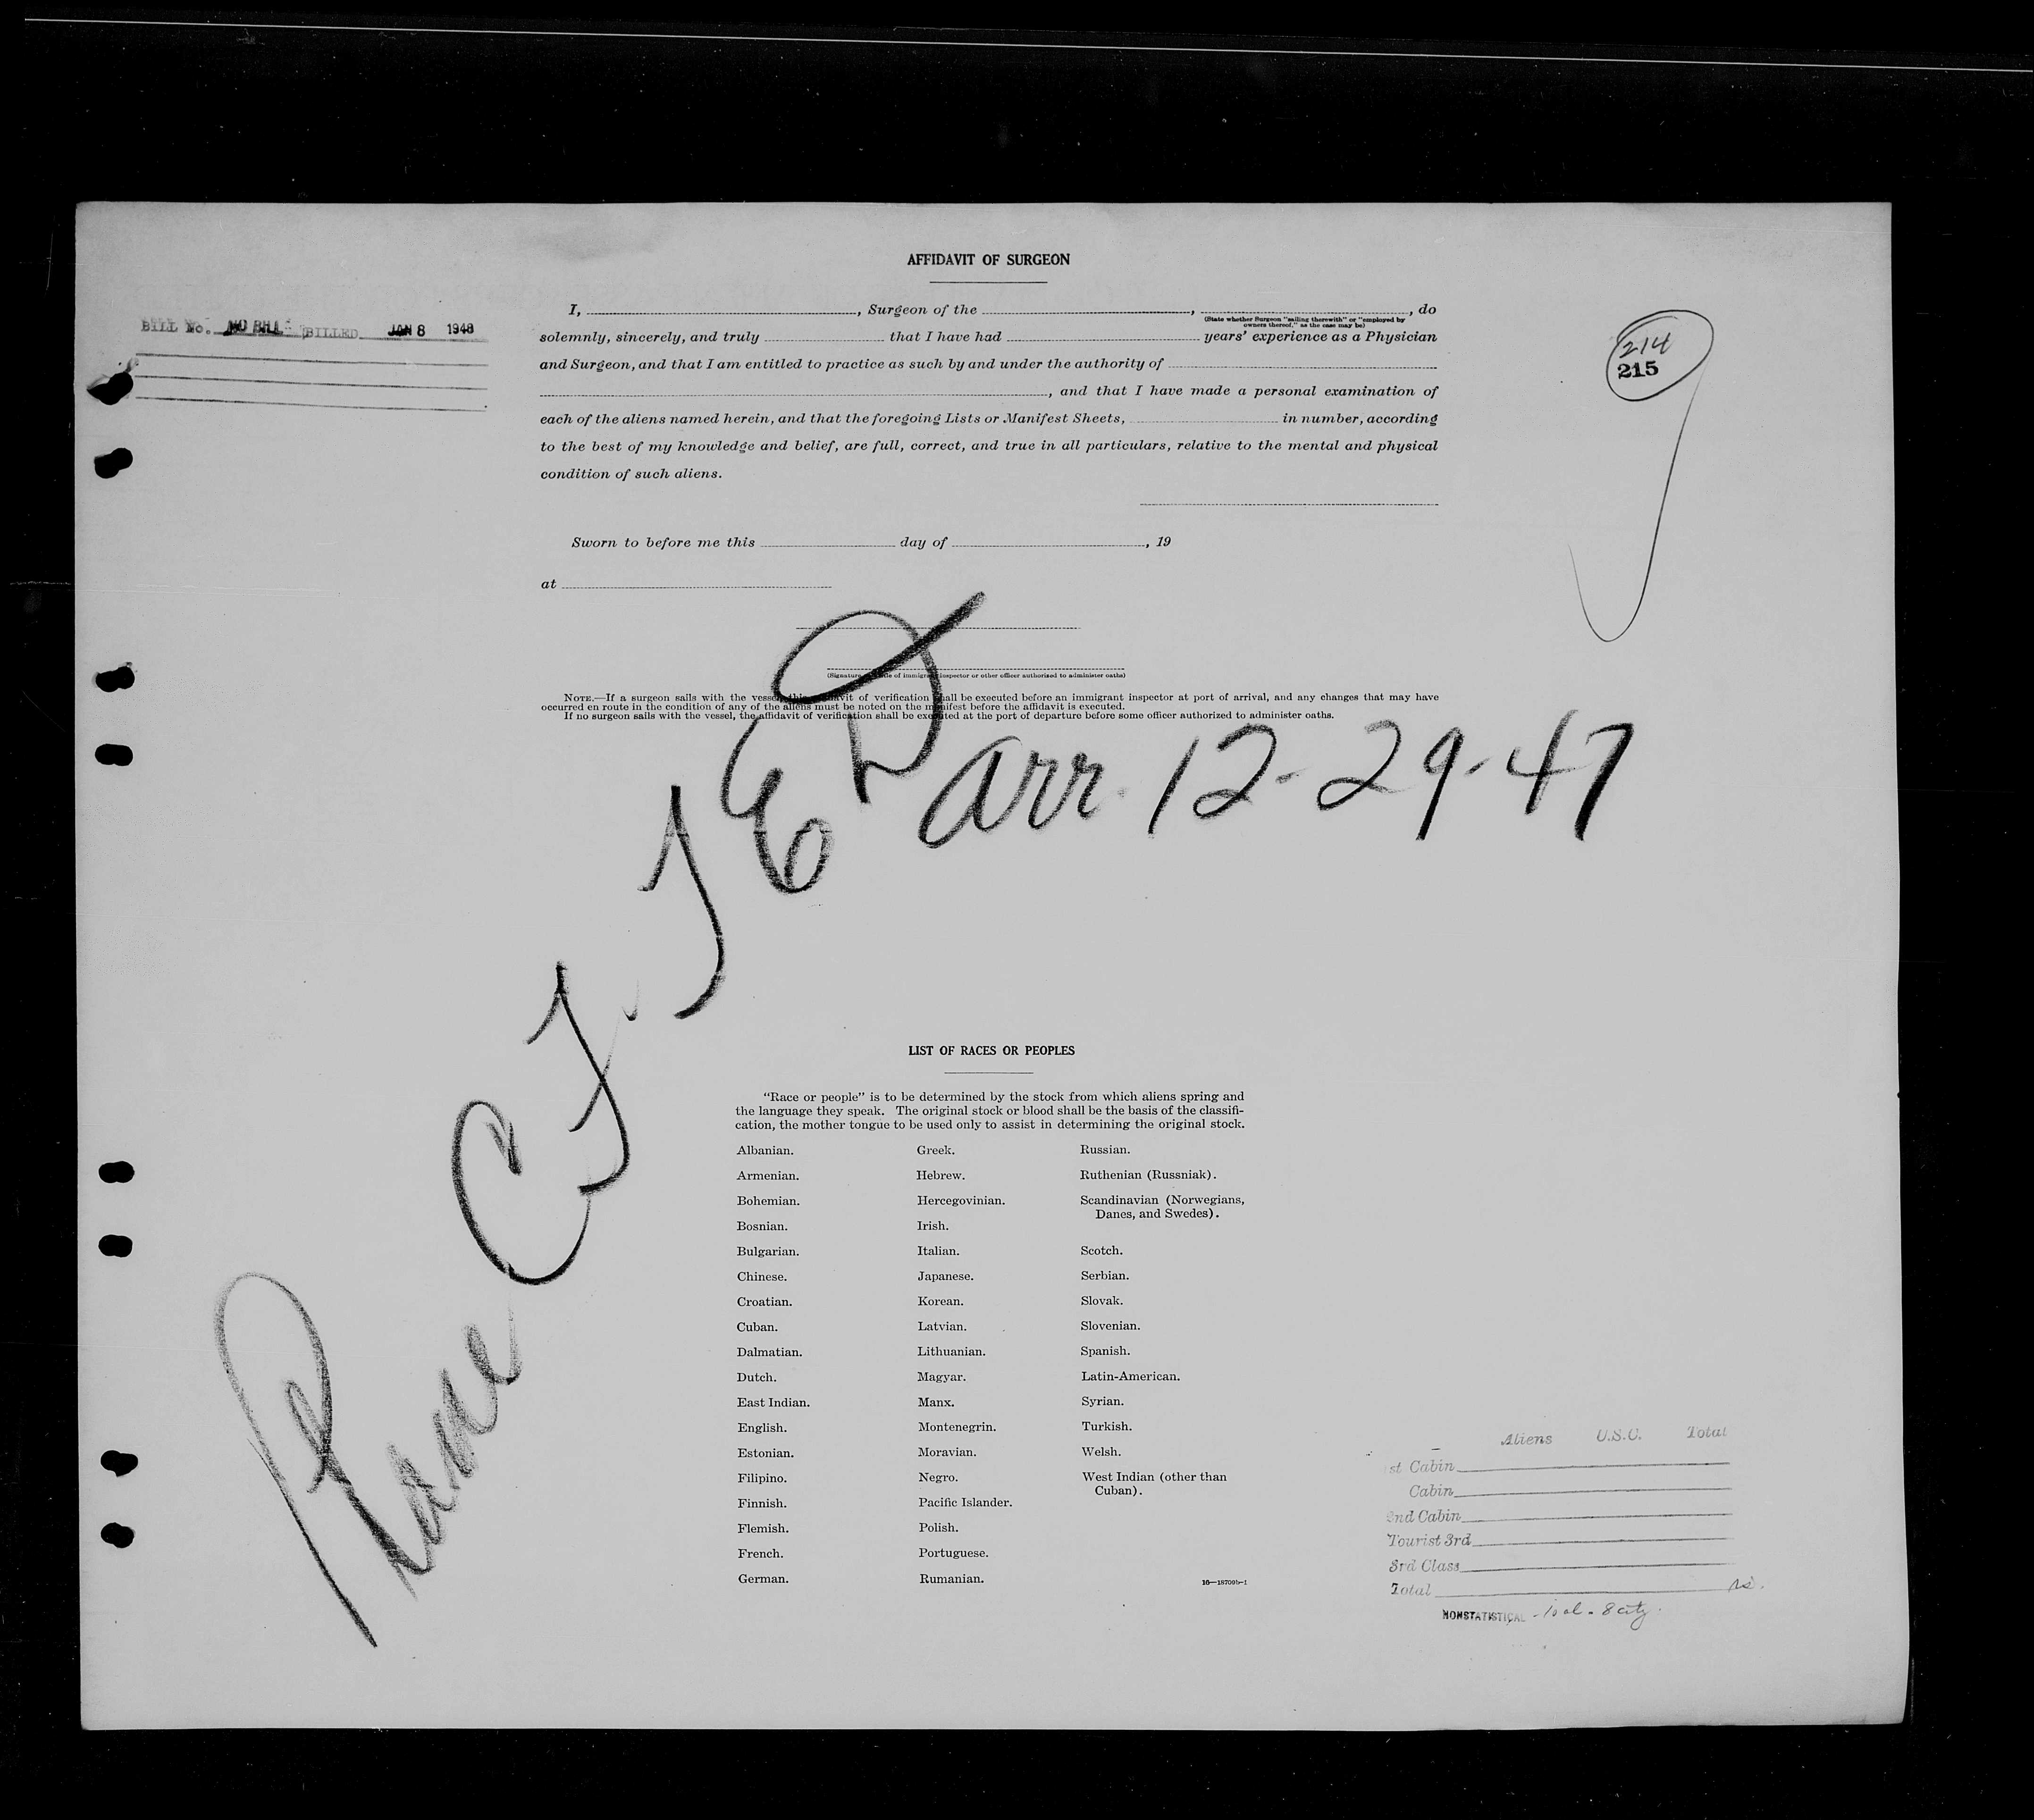 AFFIDAVIT OF SURGEON
BILL No. NO BILL BILLED JAN 8 1948
214
215
I, , Surgeon of the , , do
(State whether Surgeon "sailing therewith" or "employed by
owners thereof," as the case may be)
solemnly, sincerely, and truly that I have had years' experience as a Physician
and Surgeon, and that I am entitled to practice as such by and under the authority of
, and that I have made a personal examination of
each of the aliens named herein, and that the foregoing Lists or Manifest Sheets, in number, according
to the best of my knowledge and belief, are full, correct, and true in all particulars, relative to the mental and physical
condition of such aliens.
Sworn to before me this day of , 19
at
(Signature of immigrant inspector or other officer authorized to administer oaths)
NOTE.—If a surgeon sails with the vessel, this affidavit of verification shall be executed before an immigrant inspector at port of arrival, and any changes that may have
occurred en route in the condition of any of the aliens must be noted on the manifest before the affidavit is executed.
If no surgeon sails with the vessel, the affidavit of verification shall be executed at the port of departure before some officer authorized to administer oaths.
Plane
arr. 12-29-47
LIST OF RACES OR PEOPLES
"Race or people" is to be determined by the stock from which aliens spring and
the language they speak. The original stock or blood shall be the basis of the classifi-
cation, the mother tongue to be used only to assist in determining the original stock.
Albanian.
Armenian.
Bohemian.
Bosnian.
Bulgarian.
Chinese.
Croatian.
Cuban.
Dalmatian.
Dutch.
East Indian.
English.
Estonian.
Filipino.
Finnish.
Flemish.
French.
German.
Greek.
Hebrew.
Hercegovinian.
Irish.
Italian.
Japanese.
Korean.
Latvian.
Lithuanian.
Magyar.
Manx.
Montenegrin.
Moravian.
Negro.
Pacific Islander.
Polish.
Portuguese.
Rumanian.
Russian.
Ruthenian (Russniak).
Scandinavian (Norwegians,
Danes, and Swedes).
Scotch.
Serbian.
Slovak.
Slovenian.
Spanish.
Latin-American.
Syrian.
Turkish.
Welsh.
West Indian (other than
Cuban).
16—18709b-1
Aliens U.S.C. Total
st Cabin
Cabin
2nd Cabin
Tourist 3rd
3rd Class
Total
NONSTATISTICAL